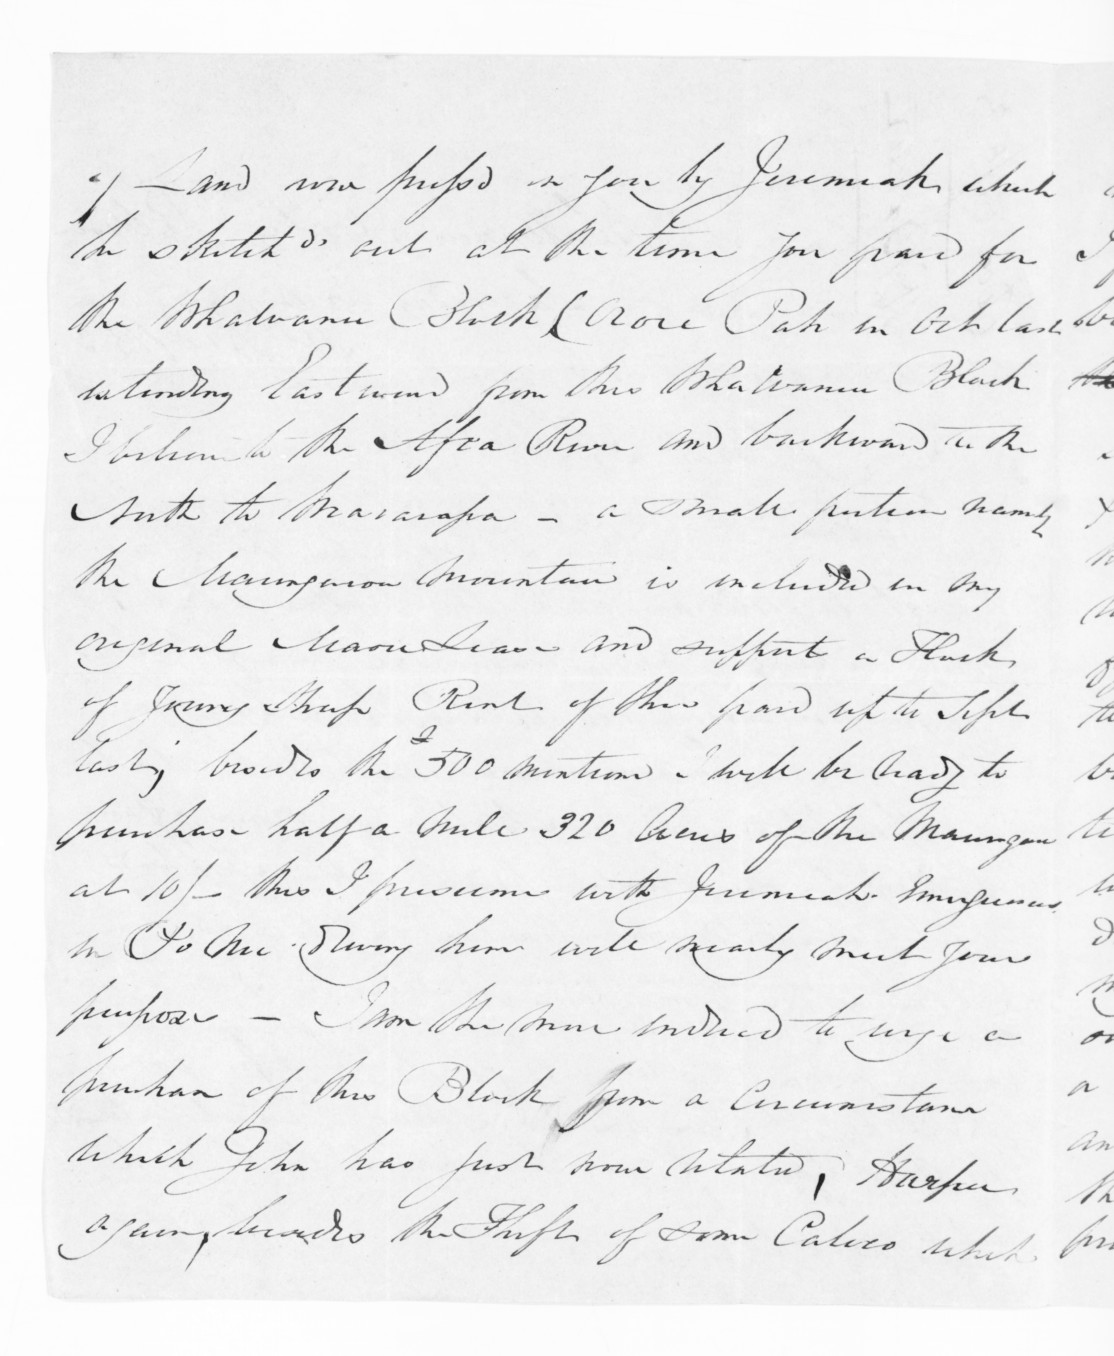 of Land was press'd on you by Jeremiah which
he sketch'd out at the time you paid for
the Whatuanu Block (Aore Pah in Oct last
extending Eastward from this Whatuanu Block
I believe to the River and backward to the
North to Mararapa - a small portion namely
the mountain is included in my
original Maori Lease and support a Flock
of Young Sheep Rent of this paid up to Sept
last; besides the £500 mention I will be ready to
purchase half a mile 320 Acres of the
at 10/- this I presume with Jeremiah
in him will nearly meet your
purpose - I am the more induced to urge a
purchase of this Block from a Circumstance
which John has just now related, Harper
again, besides the Theft of some Calico which